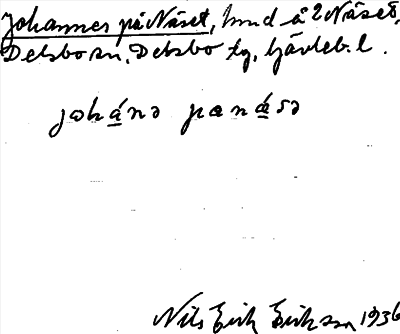 Johannes på Näset, hmd å 2 Näset,
Delsbo sn, Delsbo tg, Gävleb. l.
johánə pa nä́sə
Nils Erik Eriksson 1936